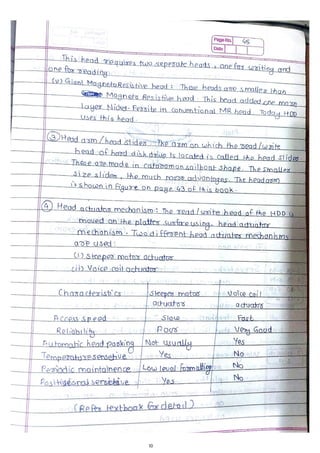 Page No. 45
Date
This head requires two seperate heads, one for writing and
one for reading.
(v) Giant Magneto Resistive head: These heads are smaller than
Magneto Resistive head. This head added one more
layer Nickel-Ferrite in conventional MR head. Today HDD
uses this head.
③ Head arm/head slider: The arm on which the read/write
head of hard disk drive is located is called the head slider
These are made in catamaran sailboat shape. The smaller
size slider, the much more advantages. The head arm
is shown in figure on page 43 of this book
④ Head actuator mechanism: The read/write head of the HDD is
moved on the platter surface using head actuator
mechanism. Two different head actuator mechanisms
are used:
(i) Steeper motor actuator
(ii) Voice coil actuator
Characteristics Steeper motor Voice coil
actuator actuator
Access speed Slow Fast
Reliability Poor Very Good
Automatic head parking Not usually Yes
Temperature sensetive Yes No
Periodic maintainence Low level formatting No
Positional sensitive Yes No
(Refer textbook for detail)
10